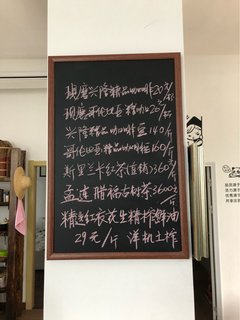 现磨兴隆精品咖啡20元/杯
现磨哥伦比亚精品咖啡26元/杯
兴隆精品咖啡豆140/斤
哥伦比亚精品咖啡豆160/斤
斯里兰卡红茶(直销)360元/斤
孟连腊福古树茶3600元/斤
精选红衣花生精榨鲜油
29元/斤 洋机土榨